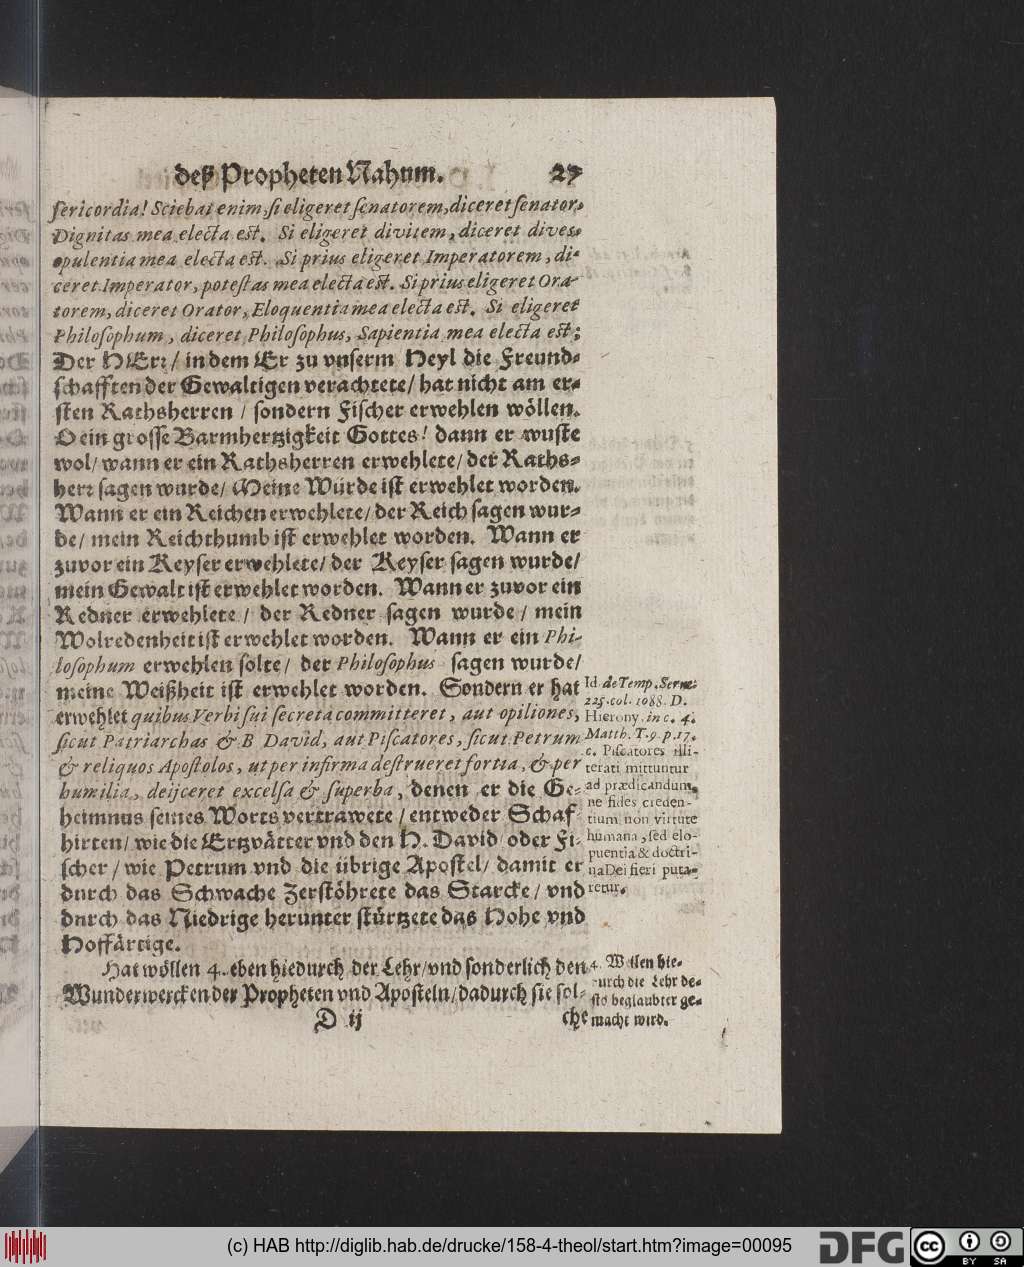 deß Propheten Nahum. 27
sericordia! Sciebat enim, si eligeret senatorem, diceret senator,
Dignitas mea electa est. Si eligeret divitem, diceret dives,
opulentia mea electa est. Si prius eligeret Imperatorem, di-
ceret Imperator, potestas mea electa est. Si prius eligeret Ora-
torem, diceret Orator, Eloquentia mea electa est. Si eligeret
Philosophum, diceret Philosophus, Sapientia mea electa est;
Der HErr/ in dem Er zu unserm Heyl die Freund-
schafften der Gewaltigen verachtete/ hat nicht am er-
sten Rathsherren / sondern Fischer erwehlen wöllen.
O ein grosse Barmhertzigkeit Gottes! dann er wuste
wol/ wann er ein Rathsherren erwehlete/ der Raths-
herr sagen wurde/ Meine Würde ist erwehlet worden.
Wann er ein Reichen erwehlete/ der Reich sagen wur-
de/ mein Reichthumb ist erwehlet worden. Wann er
zuvor ein Keyser erwehlete/ der Keyser sagen wurde/
mein Gewalt ist erwehlet worden. Wann er zuvor ein
Redner erwehlete / der Redner sagen wurde / mein
Wolredenheit ist erwehlet worden. Wann er ein Phi-
losophum erwehlen solte/ der Philosophus sagen wurde/
meine Weißheit ist erwehlet worden. Sondern er hat
erwehlet quibus Verbi sui secreta committeret, aut opiliones,
sicut Patriarchas & B David, aut Piscatores, sicut Petrum
& reliquos Apostolos, ut per infirma destrueret fortia, & per
humilia, deijceret excelsa & superba, denen er die Ge-
heimnus seines Worts vertrawete / entweder Schaf
hirten/ wie die Ertzvätter vnd den H. David/ oder Fi-
scher / wie Petrum vnd die übrige Apostel/ damit er
durch das Schwache Zerstöhrete das Starcke / vnd
durch das Niedrige herunter stürtzete das Hohe vnd
Hoffärtige.
Hat wöllen 4. eben hiedurch der Lehr/ vnd sonderlich den
Wunderwercken der Propheten vnd Aposteln/ dadurch sie sol-
D ij che
Id. de Temp. Serm.
225. col. 1088. D.
Hierony. in c. 4.
Matth. T. 9. p. 17.
c. Piscatores illi-
terati mittuntur
ad prædicandum,
ne fides creden-
tium non virtute
humana, sed elo-
quentia & doctri-
na Dei fieri puta-
retur.
4. Wöllen hie-
durch die Lehr de-
sto beglaubter ge-
macht wird.
(c) HAB http://diglib.hab.de/drucke/158-4-theol/start.htm?image=00095
DFG
cc BY SA